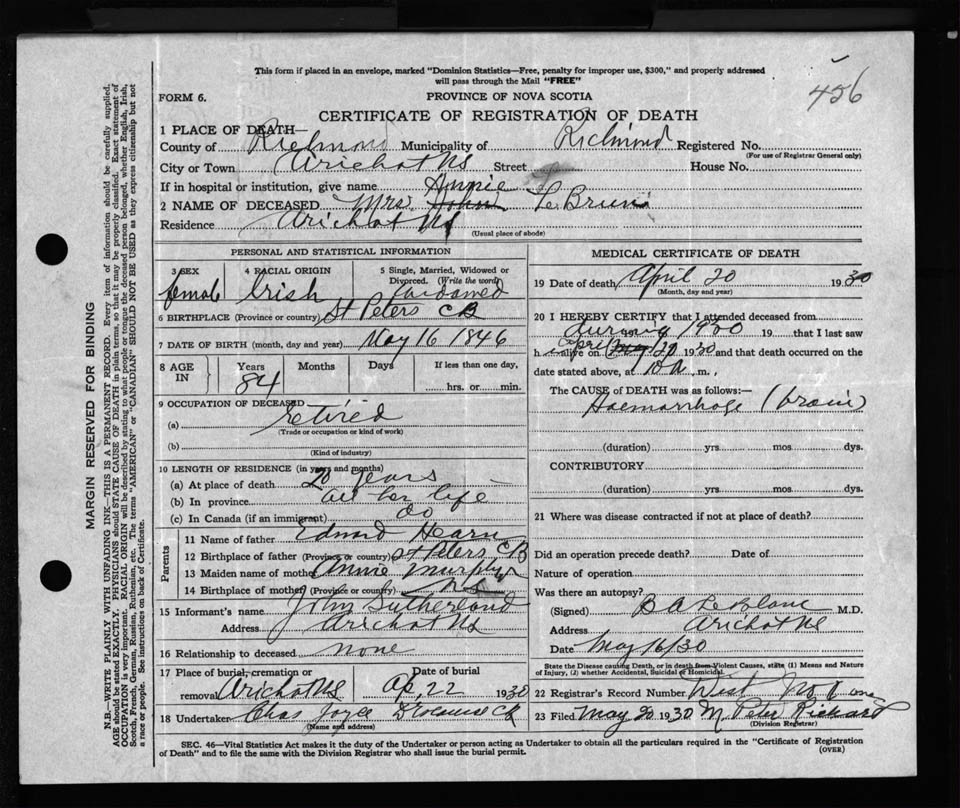 This form if placed in an envelope, marked "Dominion Statistics—Free, penalty for improper use, $300," and properly addressed
will pass through the Mail "FREE"
456
FORM 6.
PROVINCE OF NOVA SCOTIA
CERTIFICATE OF REGISTRATION OF DEATH
1 PLACE OF DEATH—
County of Richmond Municipality of Richmond Registered No.
(For use of Registrar General only)
City or Town Arichat NS Street House No.
If in hospital or institution, give name Annie
2 NAME OF DECEASED Mrs. John LeBrun
Residence Arichat NS
(Usual place of abode)
PERSONAL AND STATISTICAL INFORMATION
3 SEX 4 RACIAL ORIGIN 5 Single, Married, Widowed or Divorced. (Write the word)
female Irish
6 BIRTHPLACE (Province or country) St Peters CB
7 DATE OF BIRTH (month, day and year) May 16 1846
8 AGE IN Years Months Days If less than one day,
84 hrs. or min.
9 OCCUPATION OF DECEASED
(a) Retired
(Trade or occupation or kind of work)
(b)
(Kind of industry)
10 LENGTH OF RESIDENCE (in years and months)
(a) At place of death 20 years
(b) In province all her life
(c) In Canada (if an immigrant) do
Parents
11 Name of father Edward Hearn
12 Birthplace of father (Province or country) St Peters CB
13 Maiden name of mother Annie Murphy
14 Birthplace of mother (Province or country) NS
15 Informant's name John Sutherland
Address Arichat NS
16 Relationship to deceased none
17 Place of burial, cremation or removal Arichat NS Date of burial Ap. 22 1930
18 Undertaker Chas Joyce
(Name and address)
MEDICAL CERTIFICATE OF DEATH
19 Date of death April 20 1930
(Month, day and year)
20 I HEREBY CERTIFY that I attended deceased from
during 1930 19 that I last saw
h alive on April May 20 1930 and that death occurred on the
date stated above, at 10 a m.,
The CAUSE of DEATH was as follows:—
Haemorrhage (brain)
(duration) yrs. mos. dys.
CONTRIBUTORY
(duration) yrs. mos. dys.
21 Where was disease contracted if not at place of death?
Did an operation precede death? Date of
Nature of operation
Was there an autopsy?
(Signed) B A LeBlanc M.D.
Address Arichat NS
Date May 16/30
State the Disease causing Death, or in death from Violent Causes, state (1) Means and Nature
of Injury, (2) whether Accidental, Suicidal or Homicidal.
22 Registrar's Record Number West No. 1 one
23 Filed May 20 1930 M. Peter Richard
(Division Registrar)
SEC. 46—Vital Statistics Act makes it the duty of the Undertaker or person acting as Undertaker to obtain all the particulars required in the "Certificate of Registration
of Death" and to file the same with the Division Registrar who shall issue the burial permit.
(OVER)
MARGIN RESERVED FOR BINDING
N.B.—WRITE PLAINLY WITH UNFADING INK—THIS IS A PERMANENT RECORD. Every item of information should be carefully supplied.
AGE should be stated EXACTLY. PHYSICIANS should STATE CAUSE OF DEATH in plain terms, so that it may be properly classified. Exact statement of
OCCUPATION is very important. RACIAL ORIGIN will be described by stating to what people or tongue the deceased person belonged, whether English, Irish,
Scotch, French, German, Russian, Ruthenian, etc. The terms "AMERICAN" or "CANADIAN" SHOULD NOT BE USED as they express citizenship but not
a race or people. See instructions on back of Certificate.